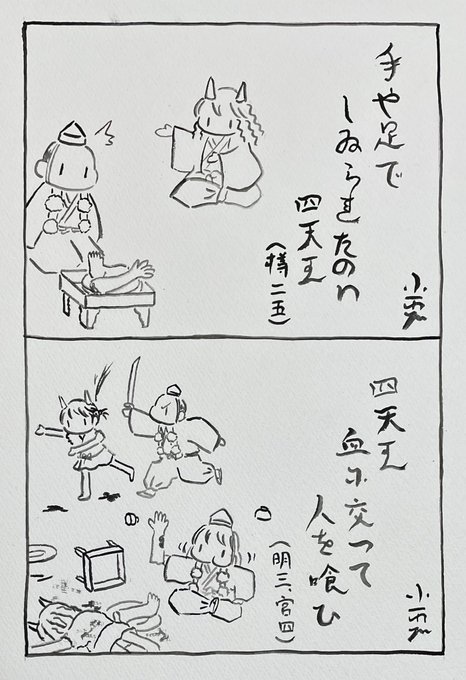 手や足で
しゐられたのハ
四天王
(樽二五)
四天王
血に交つて
人を喰ひ
(明三、宮四)